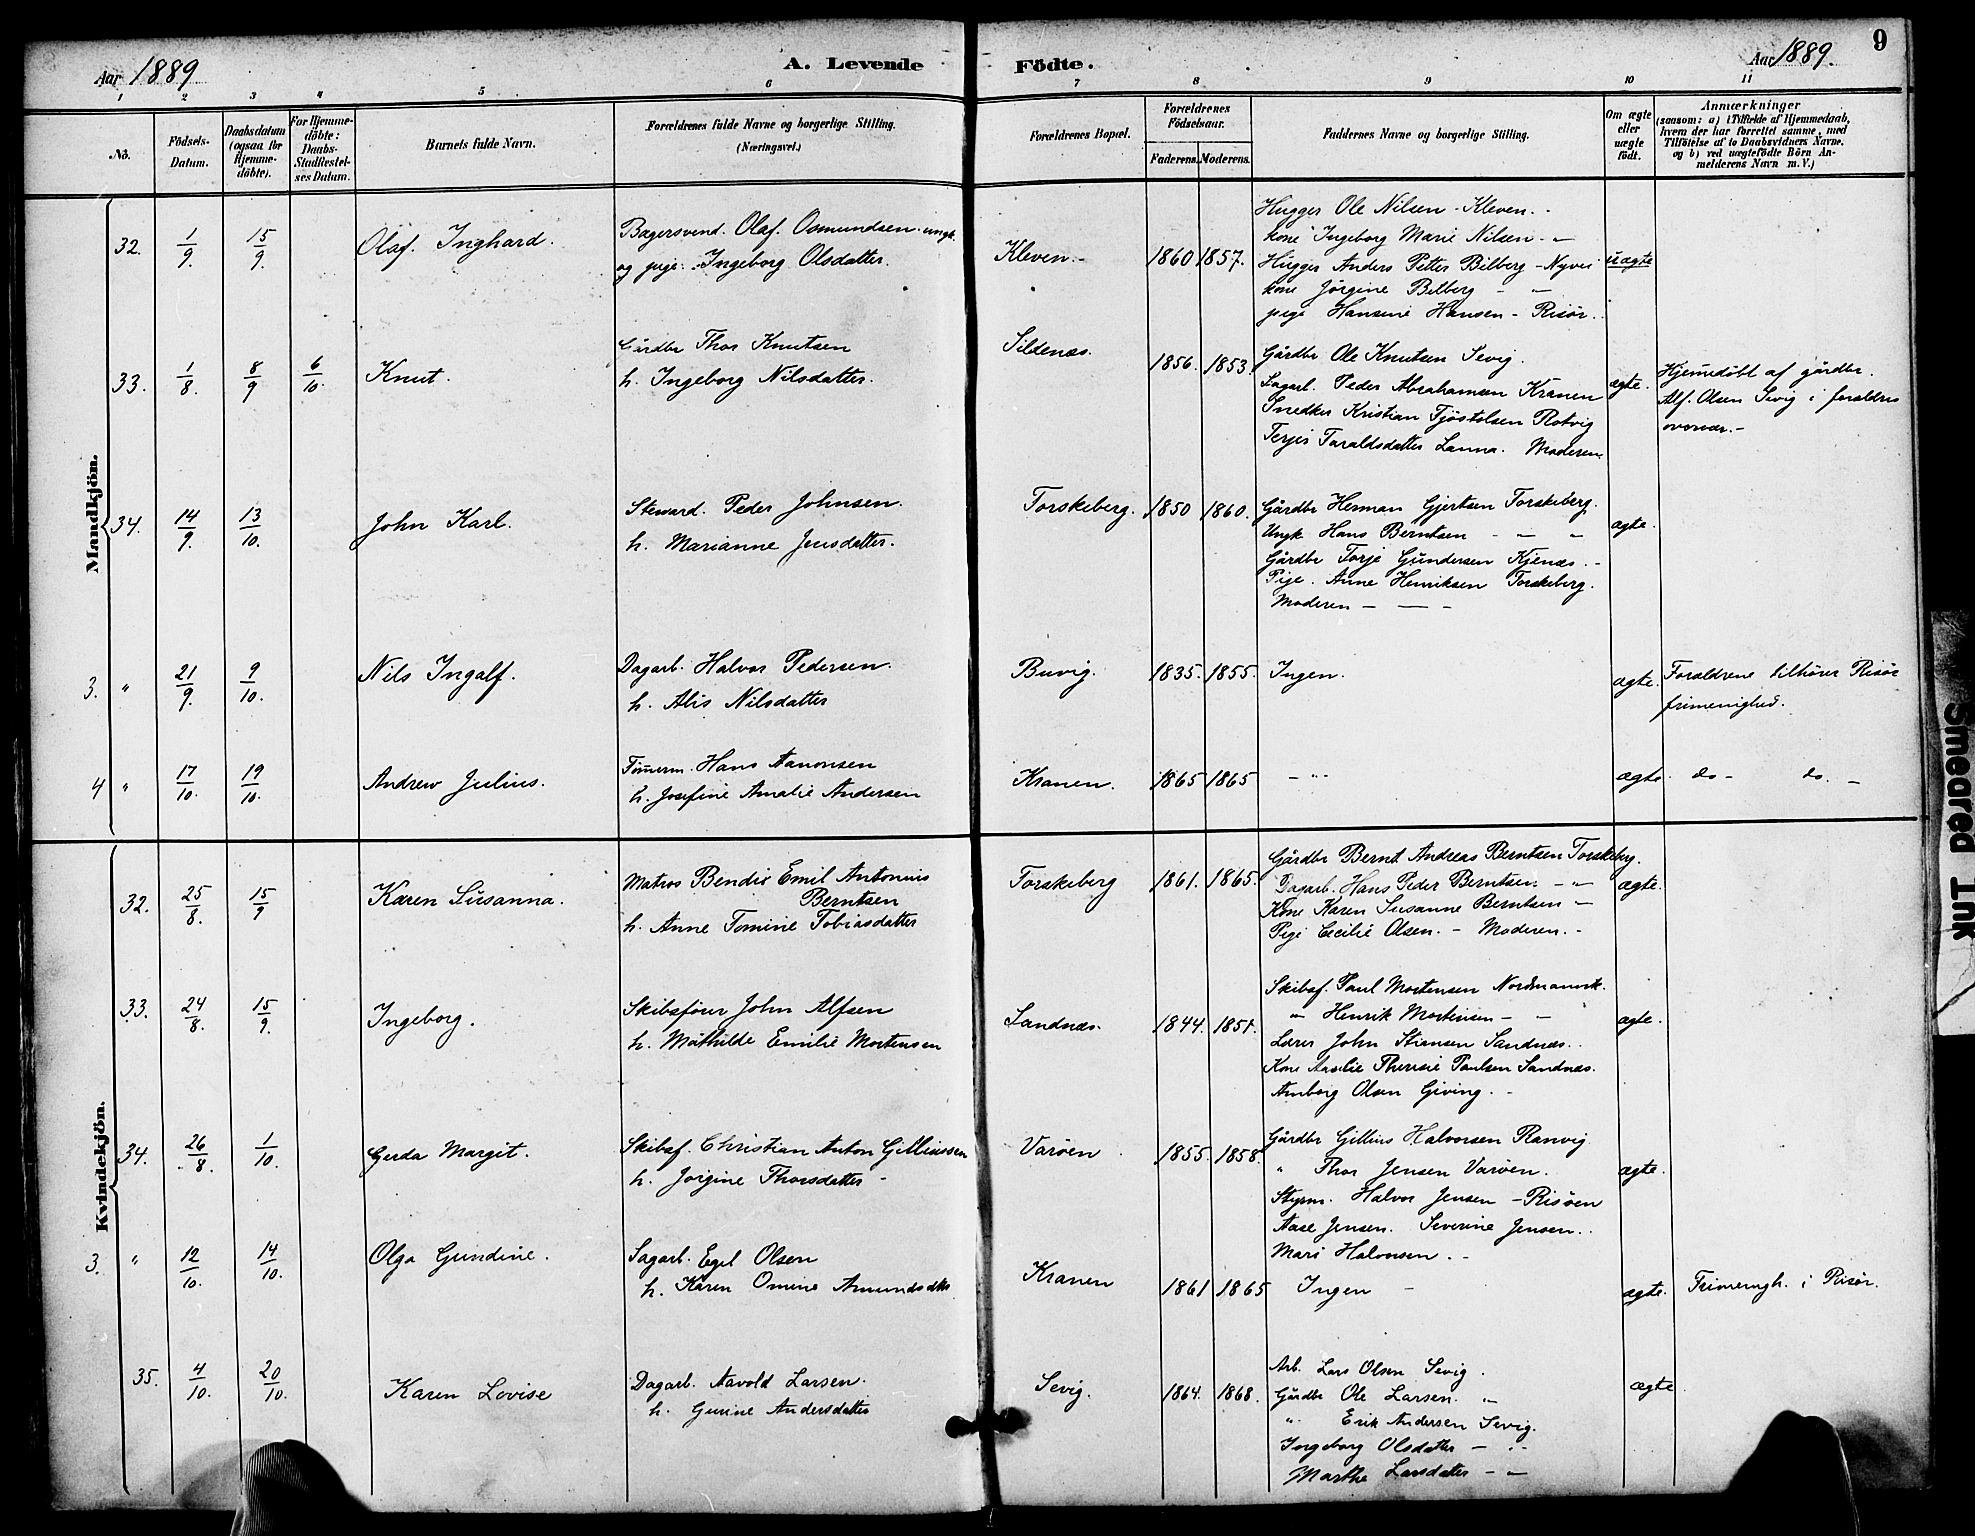 Aar 1889
A. Levende
Födte.
Aar 1889.
9
1 2 3 4 5 6 7 8 9 10 11
No.
Födsels-
Datum.
Daabsdatum
(ogsaa for
Hjemme-
döbte).
For Hjemme-
döbte:
Daabs-
Stadfæstel-
ses Datum.
Barnets fulde Navn.
Forældrenes fulde Navne og borgerlige Stilling.
(Næringsvei.)
Forældrenes Bopæl.
Forældrenes
Födselsaar.
Faderens. Moderens.
Faddernes Navne og borgerlige Stilling.
Om ægte
eller
uægte
födt.
Anmærkninger
(saasom: a) i Tilfælde af Hjemmedaab,
hvem der har forrettet samme, med
Tilföielse af to Daabsvidners Navne,
og b) ved uægtefödte Börn An-
melderens Navn m. V.)
Mandkjön.
32. 1/9. 15/9. Olaf. Inghard.
Bagersvend. Olaf. Osmundsen. ungk.
og pige. Ingeborg Olsdatter.
Kleven. - 1860 1857.
Hugger Ole Nilsen - Kleven. -
kone Ingeborg Marie Nilsen - "
Hugger Anders Petter Bilberg - Nyvei
kone Jörgine Bilberg - "
pige Hansine Hansen - Risör.
uægte
33. 1/8. 8/9 6/10. Knut.
Gårdbr Thor Knutsen
h. Ingeborg Nilsdatter.
Sildenæs. 1856. 1853
Gårdbr Ole Knutsen Sevig.
Sagarb. Peder Abrahamsen Kranen
Snedker Kristian Tjöstolsen Rotvig
Terjer Taraldsdatter Lanna. Moderen.
ægte.
Hjemedöbt af gårdbr.
Alf. Olsen Sevig i forældres
overvær. -
34. 14/9. 13/10. John Karl.
Steward. Peder Johnsen.
h. Marianne Jensdatter.
Torskeberg. 1850 1860.
Gårdbr Herman Gjertsen Torskeberg.
Ungk Hans Berntsen - " "
Gårdbr Torje Gundersen Kjenæs. -
Pige. Anne Henriksen Torskeberg.
Moderen - — -
ægte.
3. " 21/9. 9/10. Nils Ingalf.
Dagarb. Halvor Pedersen.
h. Alis Nilsdatter
Buvig. 1835. 1855. Ingen.
ægte.
Forældrene tilhörer Risör
frimenighed.
4 " 17/10. 19/10. Andrew Julius.
Tömerm. Hans Aanonsen
h. Josefine Amalie Andersen
Kranen. 1865 1865 - " -
ægte. do - do. -
Kvindekjön.
32. 25/8. 15/9 Karen Susanna.
Matros Bendix Emil Antonius
Berntsen
h. Anne Tomine Tobiasdatter
Torskeberg 1861. 1865.
Gårdbr Bernt Andreas Berntsen Torskeberg.
Dagarb. Hans Peder Berntsen. - "
Kone Karen Susanne Berntsen "
Pige Cecilie Olsen. - Moderen. -
ægte.
33. 24/8. 15/9. Ingeborg.
Skibsförer John Alfsen
h. Mathilde Emilie Mortensen
Sandnæs. 1844. 1851.
Skibsf. Paul Mortensen Nordmansvk.
" Henrik Mortensen - "
Lærer John Stiansen Sandnæs.
Kone Amelie Theresie Paulsen Sandnæs.
Amborg Olsen Giving. -
ægte.
34. 26/8. 1/10. Gerda Margit.
Skibsf. Christian Anton Gilliussen
h. Jörgine Thorsdatter -
Varöen 1855. 1858.
Gårdbr Gillius Halvorsen Ranvig.
" Thor Jensen Varöen.
Styrm. Halvor Jensen - Risöen
Aase Jensen. Severine Jensen.
Mari Halvorsen. -
ægte.
3. " 12/10. 14/10. Olga Gundine.
Sagarb. Egel Olsen
h. Karen Omine Amundsdtr
Kranen 1861 1865 Ingen -
ægte. Frimenigh. i Risör.
35. 4/10. 20/10. Karen Lovise
Dagarb. Aavold Larsen.
h. Gurine Andersdatter
Sevig. 1864. 1868.
Arb. Lars Olsen Sevig.
Gårdbr Ole Larsen. "
" Erik Andersen Sevig.
Ingeborg Olsdatter - "
Marthe Larsdatter - "
ægte
Smeared Ink